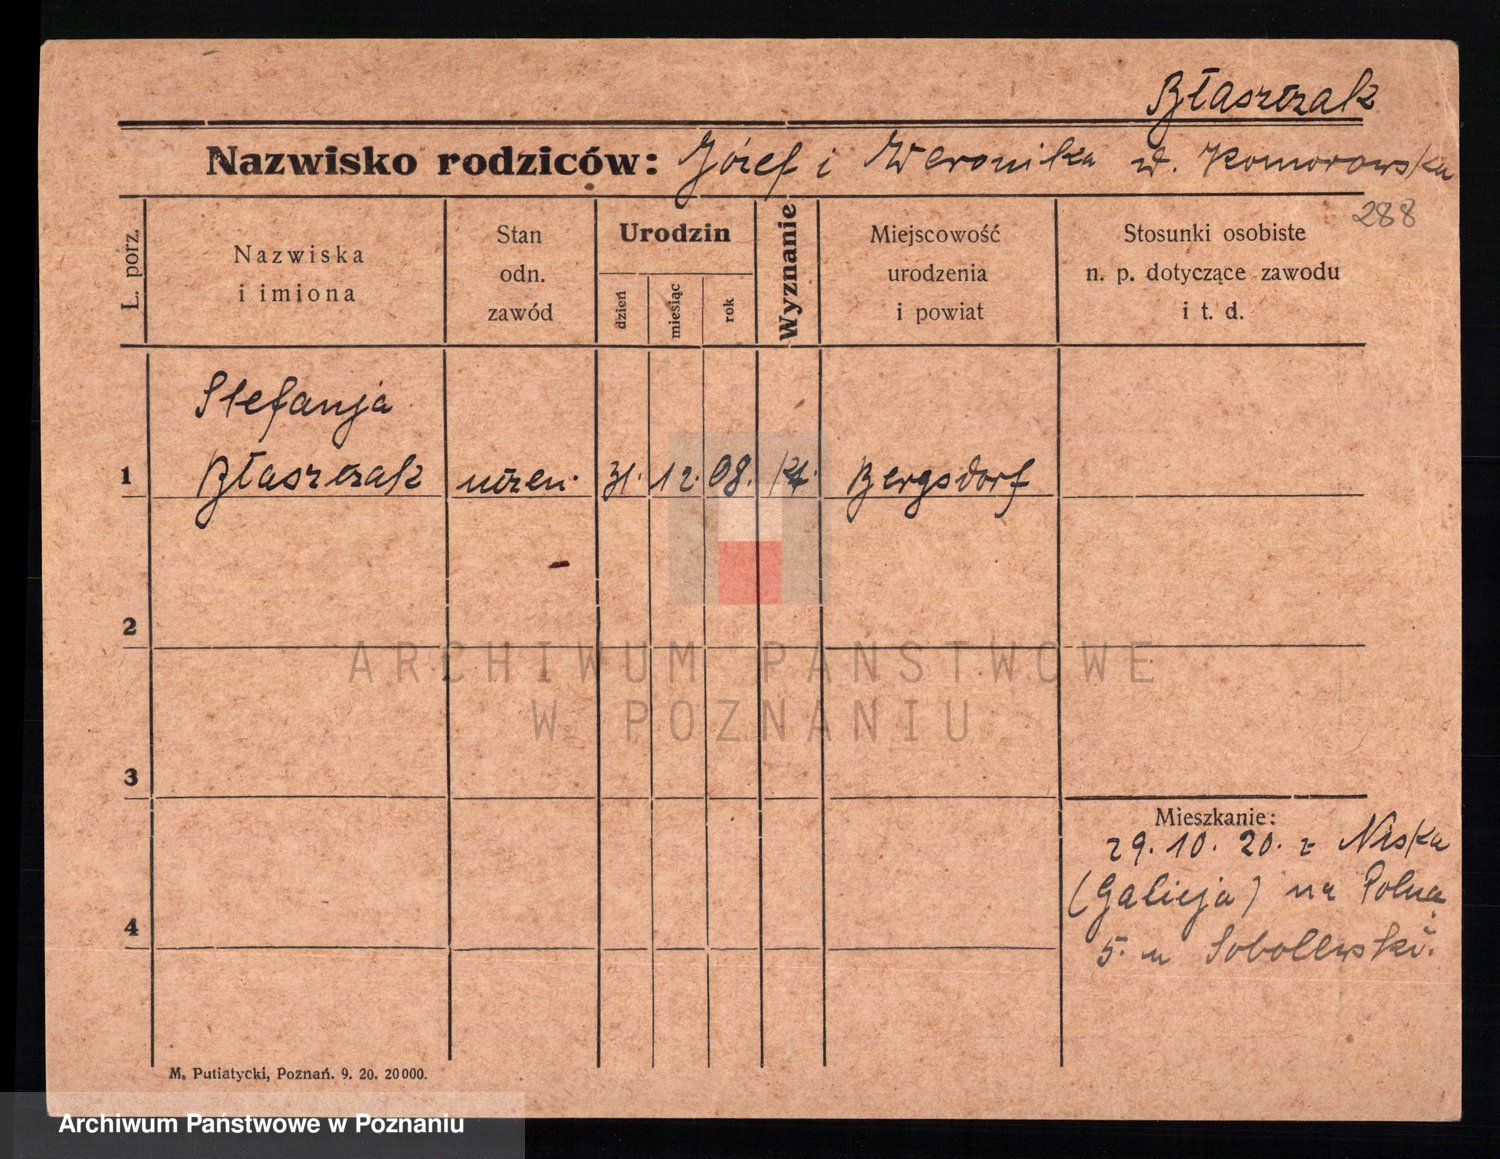 Błaszczak
Nazwisko rodziców: Józef i Weronika z d. Komorowska
288
L. porz.
Nazwiska
i imiona
Stan
odn.
zawód
Urodzin
dzień
miesiąc
rok
Wyznanie
Miejscowość
urodzenia
i powiat
Stosunki osobiste
n. p. dotyczące zawodu
i t. d.
Stefanja
1 Błaszczak 31. 12. 08. kt. Bergsdorf
2
ARCHIWUM PAŃSTWOWE
W POZNANIU
3
Mieszkanie:
29. 10. 20. z Niska
(Galicja) na Polną
4
5. u Sobolewski.
M. Putiatycki, Poznań. 9. 20. 20000.
Archiwum Państwowe w Poznaniu